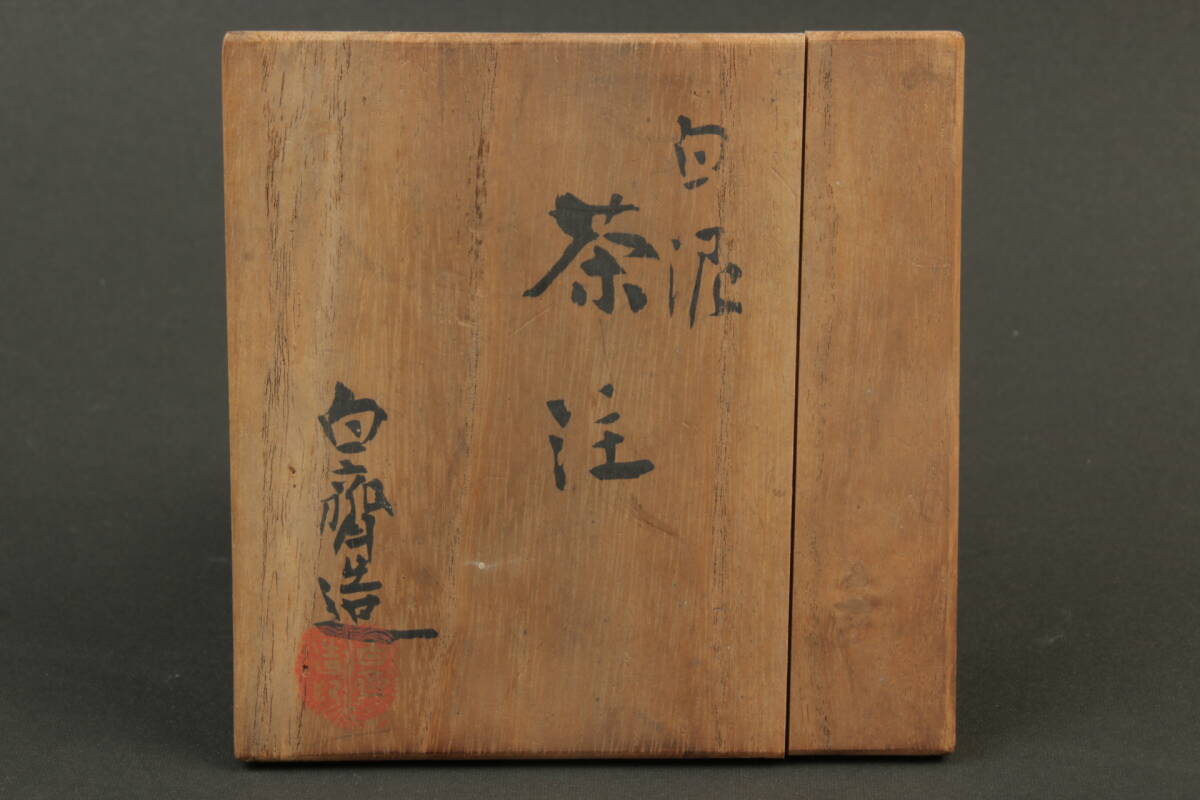 白泥
茶注
白齋造